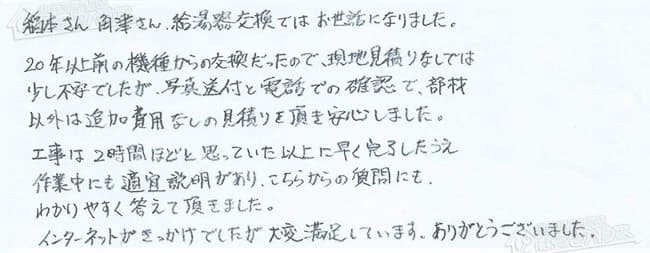 稲本さん 角津さん、給湯器交換ではお世話になりました。
20年以上前の機種からの交換だったので、現地見積りなしでは
少し不安でしたが、写真送付と電話での確認で、部材
以外は追加費用なしの見積りを頂き安心しました。
工事は2時間ほどと思っていた以上に早く完了したうえ
作業中にも適宜説明があり、こちらからの質問にも、
わかりやすく答えて頂きました。
インターネットがきっかけでしたが大変満足しています、ありがとうございました。